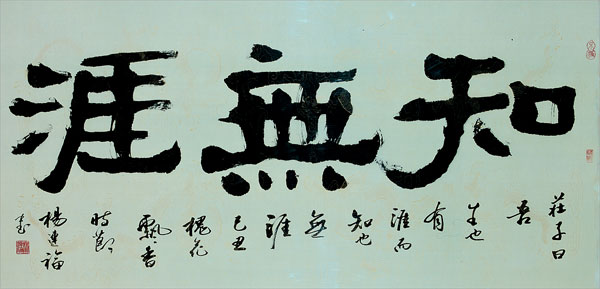 知無涯
莊子曰
吾
生也
有
涯而
知也
無
涯
己丑
槐花
飄香
時節
楊 福
書